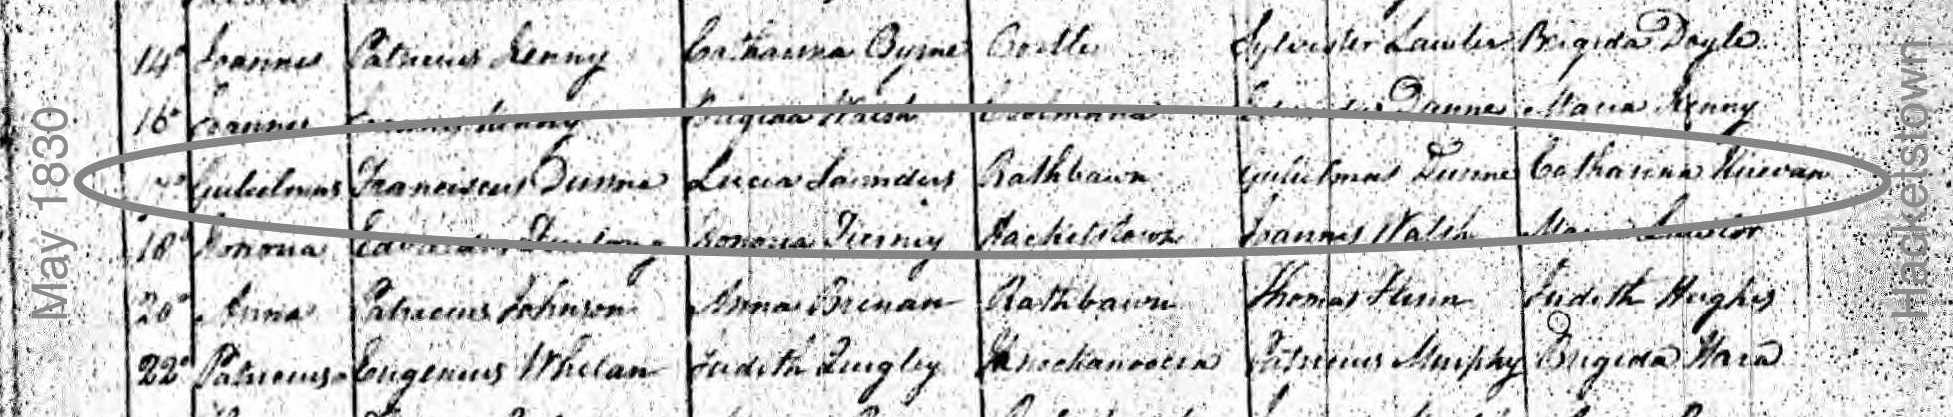 May 1830
14° Joannes Patricius Kenny Catharina Byrne Sylvester Lawler Brigida Doyle
16° Joannes Kenny Brigida Walsh Dunne Maria Kenny
17° Gulielmus Franciscus Dunne Lucia Saunders Rathbawn Gulielmus Dunne Catharina
18° Honoria Honoria Tierney Hacketstown Joannes Walsh Maria Lawlor
20° Anna Patricius Johnson Anna Brenan Rathbawn Thomas Flinn Judith Hughes
22° Patricius Eugenius Whelan Judith Quigley Patricius Murphy Brigida Hara
Hacketstown